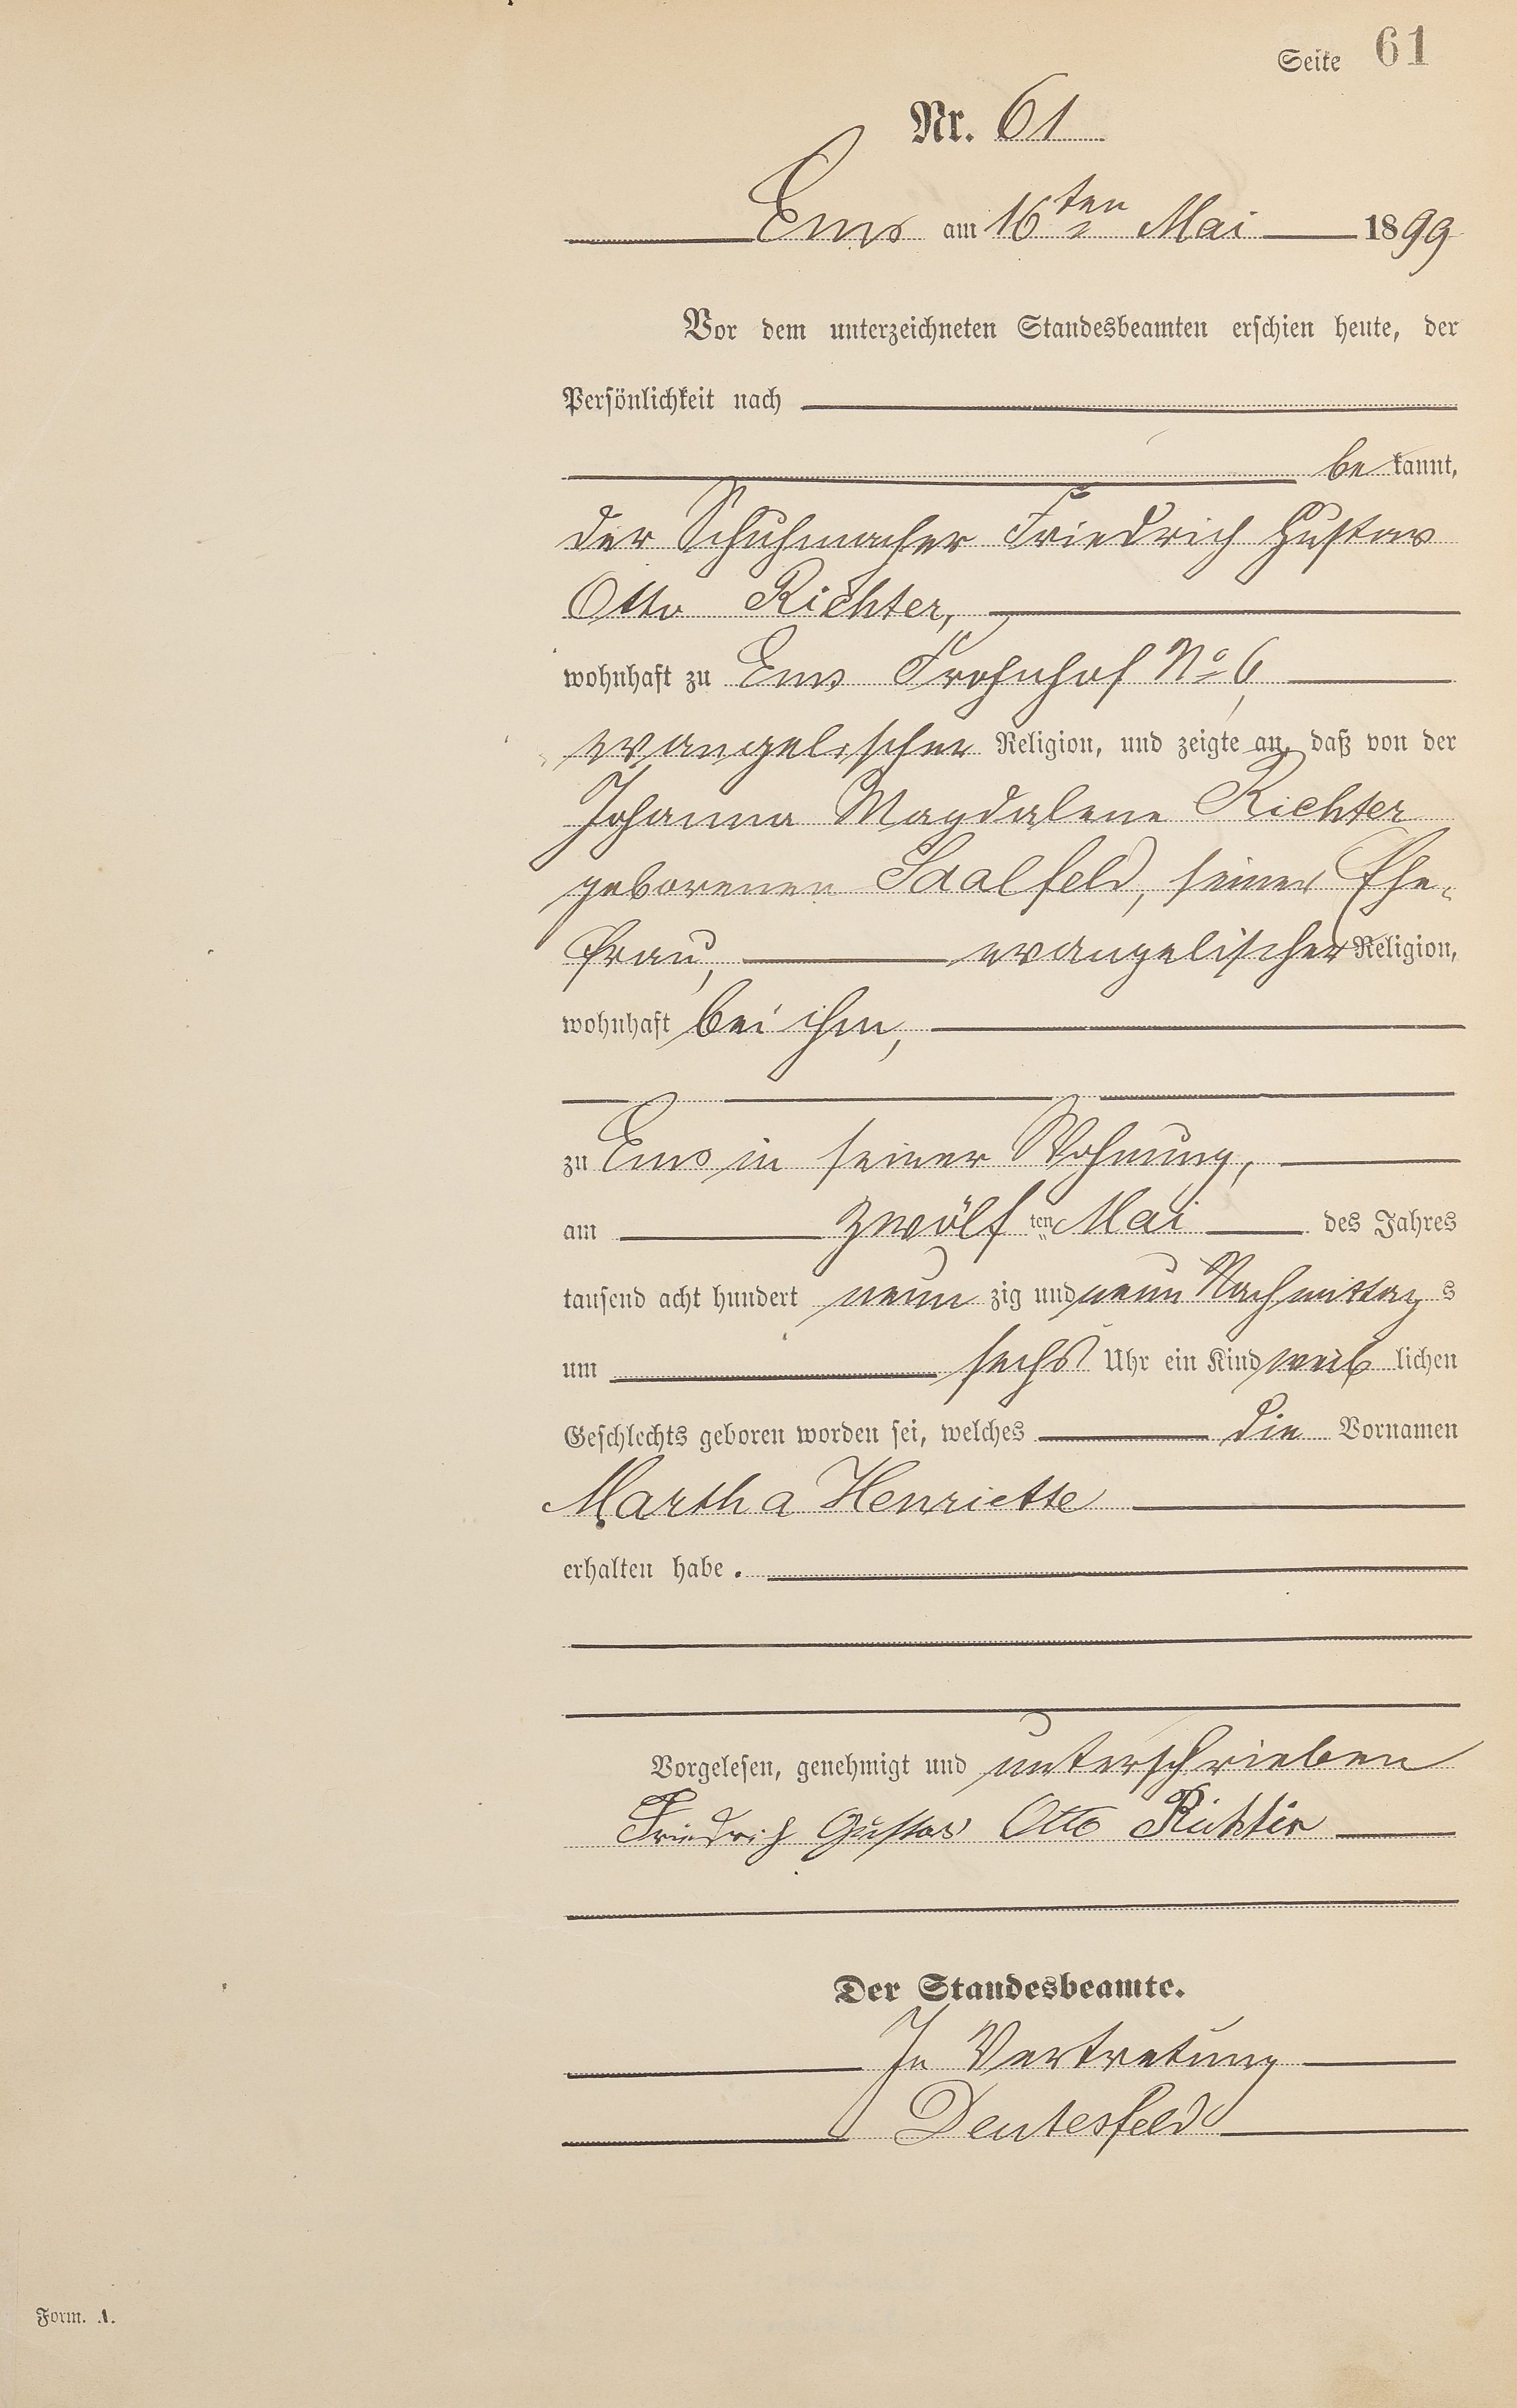 Seite 61
Nr. 61
Ems am 16ten Mai 1899
Vor dem unterzeichneten Standesbeamten erschien heute, der
Persönlichkeit nach
be kannt,
der Schuhmacher Friedrich Gustav
Otto Richter,
wohnhaft zu Ems Frohnhof No 6,
evangelischer Religion, und zeigte an, daß von der
Johanna Magdalene Richter
geborenen Saalfeld, seiner Ehe-
frau, evangelischer Religion,
wohnhaft bei ihm,
zu Ems in seiner Wohnung,
am zwölf ten Mai des Jahres
tausend acht hundert neun zig und neun Nachmittag s
um sechs Uhr ein Kind weib lichen
Geschlechts geboren worden sei, welches die Vornamen
Martha Henriette
erhalten habe.
Vorgelesen, genehmigt und unterschrieben
Friedrich Gustav Otto Richter
Der Standesbeamte.
In Vertretung
Deutesfeld
Form. A.